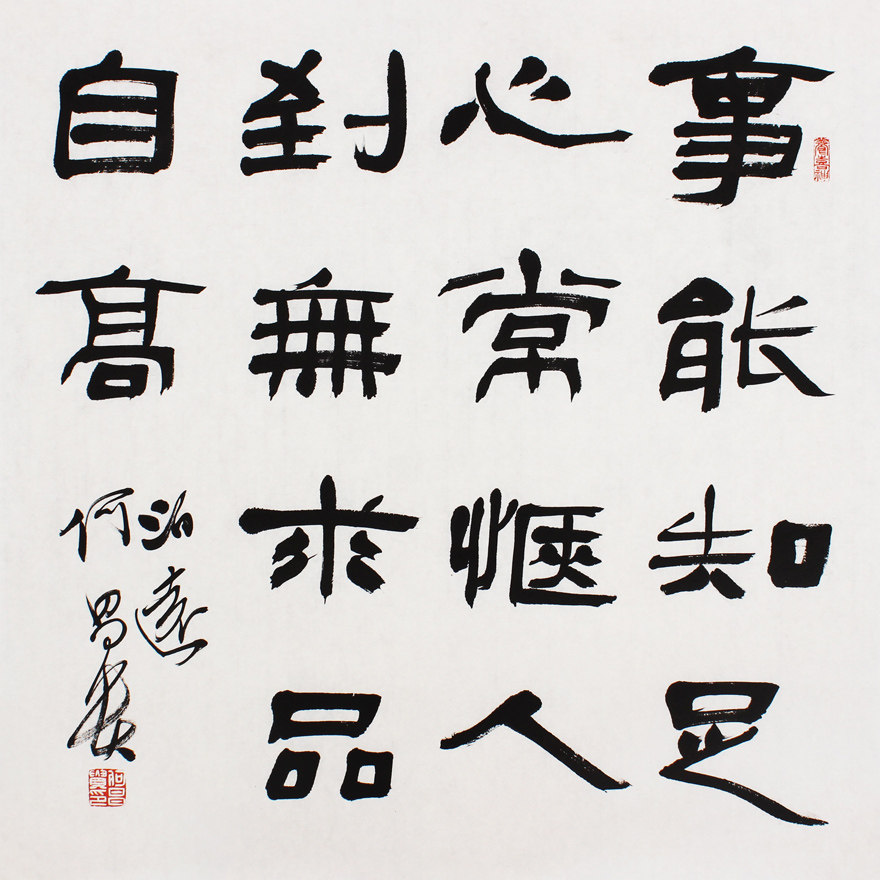 事能知足
心常惬人
到無求品
自高
泊遠
何昌贵